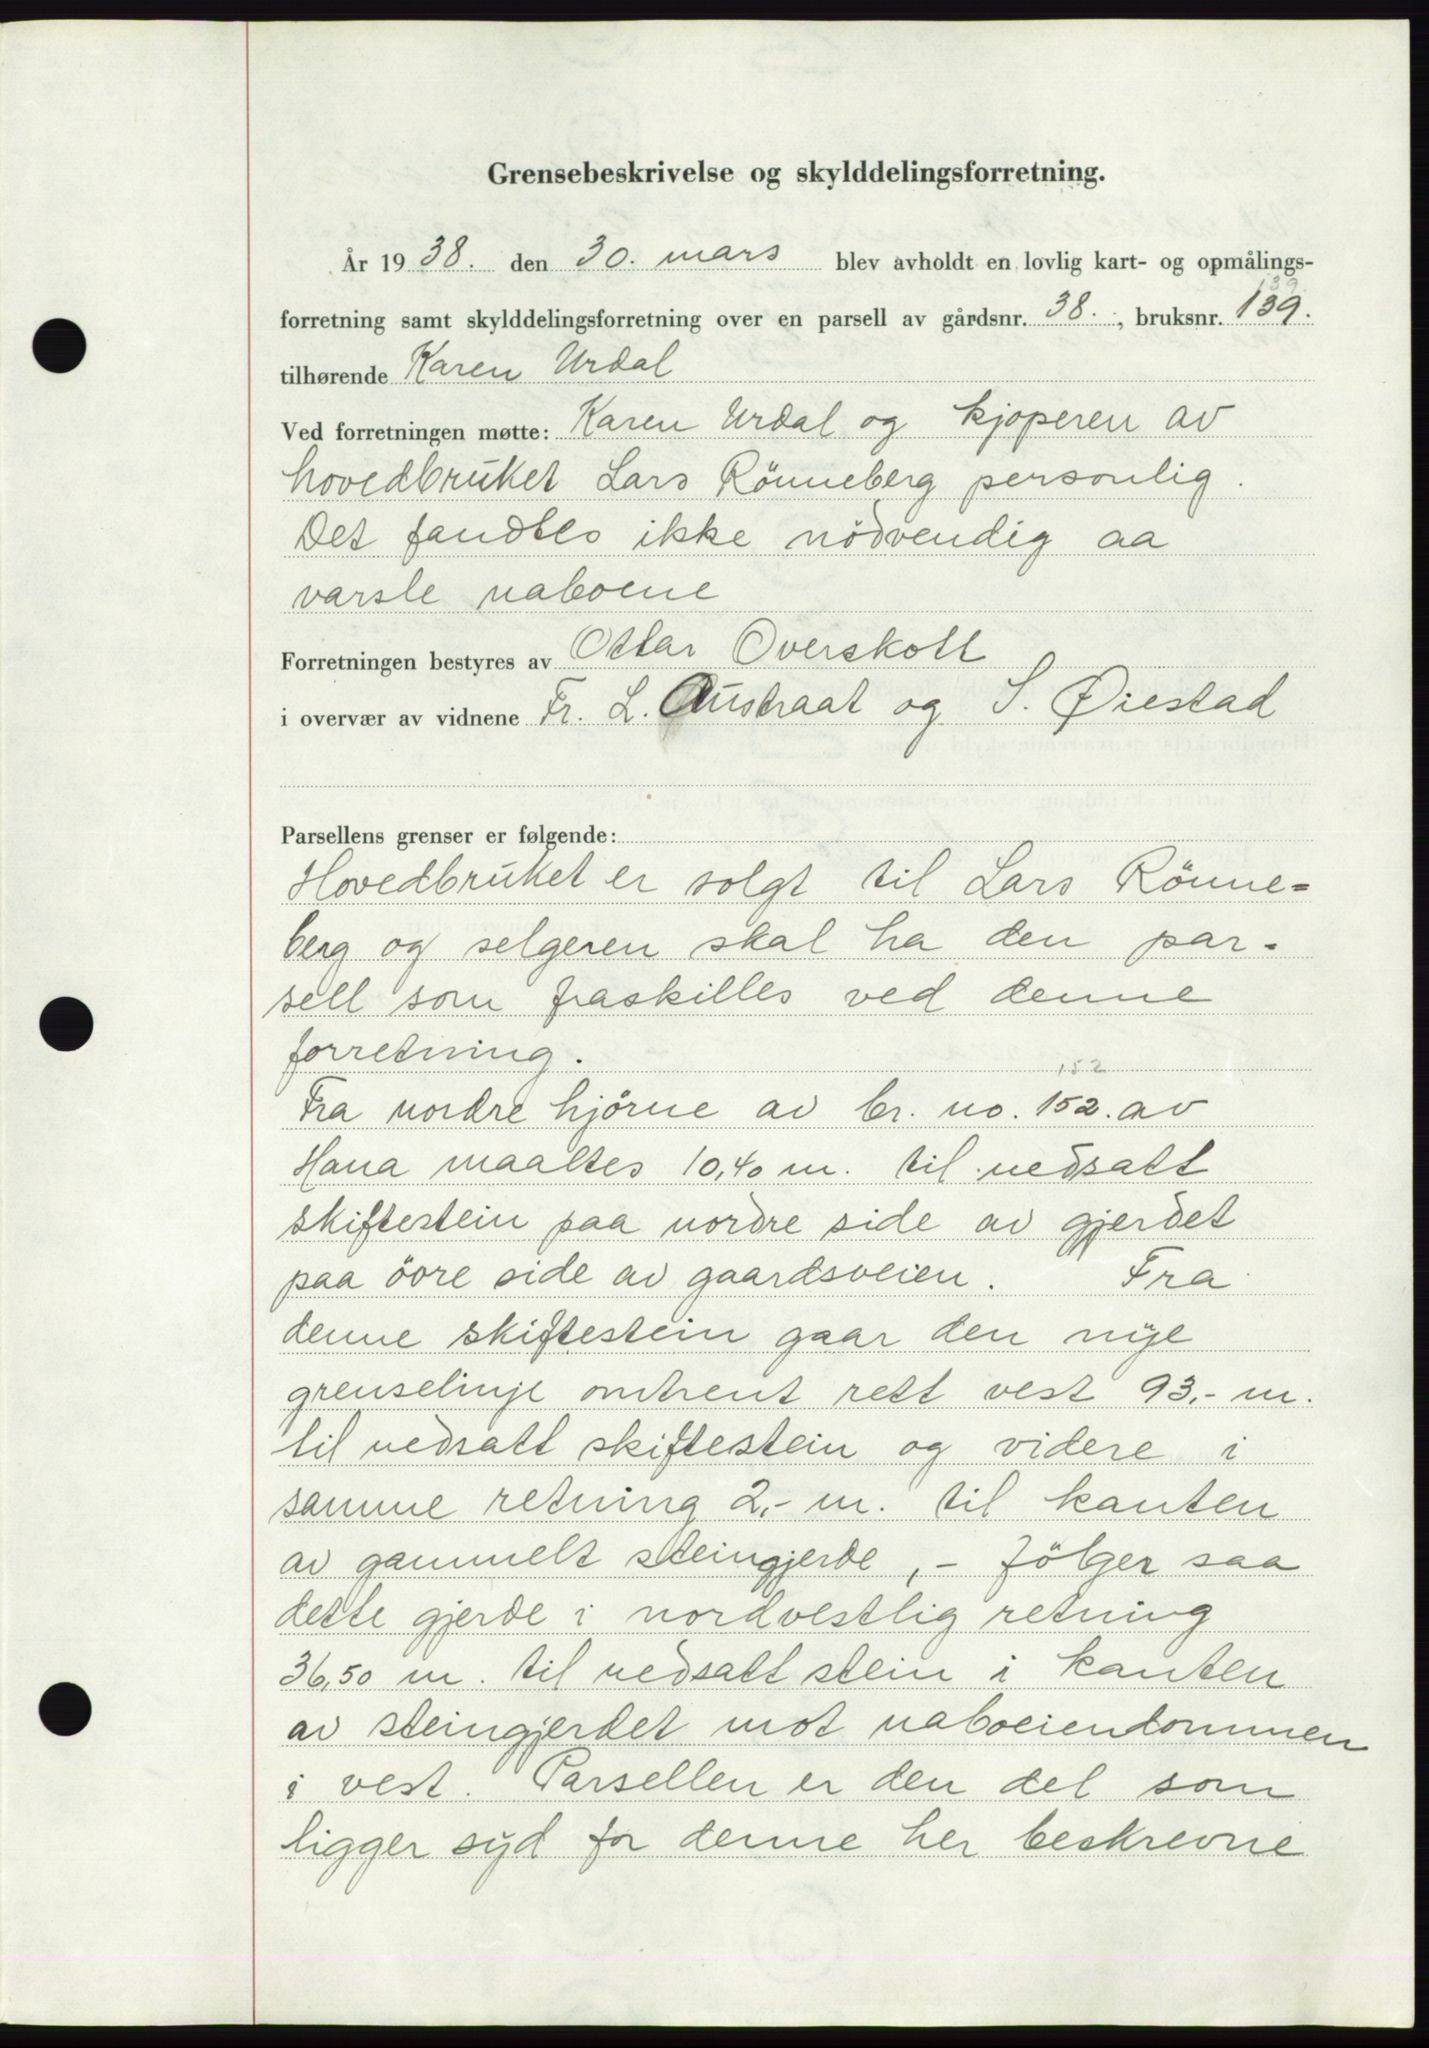 Grensebeskrivelse og skylddelingsforretning.
År 1938. den 30. mars blev avholdt en lovlig kart- og opmålings-
139.
forretning samt skylddelingsforretning over en parsell av gårdsnr. 38., bruksnr. 139.
tilhørende Karen Urdal
Ved forretningen møtte: Karen Urdal og kjoperen av
hovedbruket Lars Rönneberg personlig.
Det fandtes ikke nödvendig aa
varsle naboene
Forretningen bestyres av Ottar Overskott
i overvær av vidnene Fr. L. Austraat og S. Øiestad
Parsellens grenser er følgende:
Hovedbruket er solgt til Lars Rönne=
berg og selgeren skal ha den par-
sell som fraskilles ved denne
forretning.
152
Fra nordre hjörne av br. no. 152. av
Hana maaltes 10,40 m. til nedsatt
skiftestein paa nordre side av gjerdet
paa övre side av gaardsveien. Fra
denne skiftestein gaar den nye
grenselinje omtrent rett vest 93,- m.
til nedsatt skiftestein og videre i
samme retning 2,- m. til kanten
av gammelt steingjerde, - fölger saa
dette gjerde i nordvestlig retning
36,50 m. til nedsatt stein i kanten
av steingjerdet mot naboeiendommen
i vest. Parsellen er den del som
ligger syd for denne her beskrevne